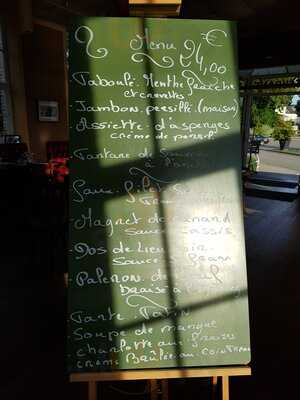 Menu 24,00 €
Taboulé. Menthe fraîche
et crevettes
Jambon. persillé (maison)
Assiette d'asperges
crème de persil
Tartare de
à
Faux. filet
Magret de canard
sauce cassis
Dos de Lieu
Sauce
Paleron. de
braisé à
Tarte. Tatin
Soupe de mangue
charlotte aux fraises
crème Brûlée au Cointreau